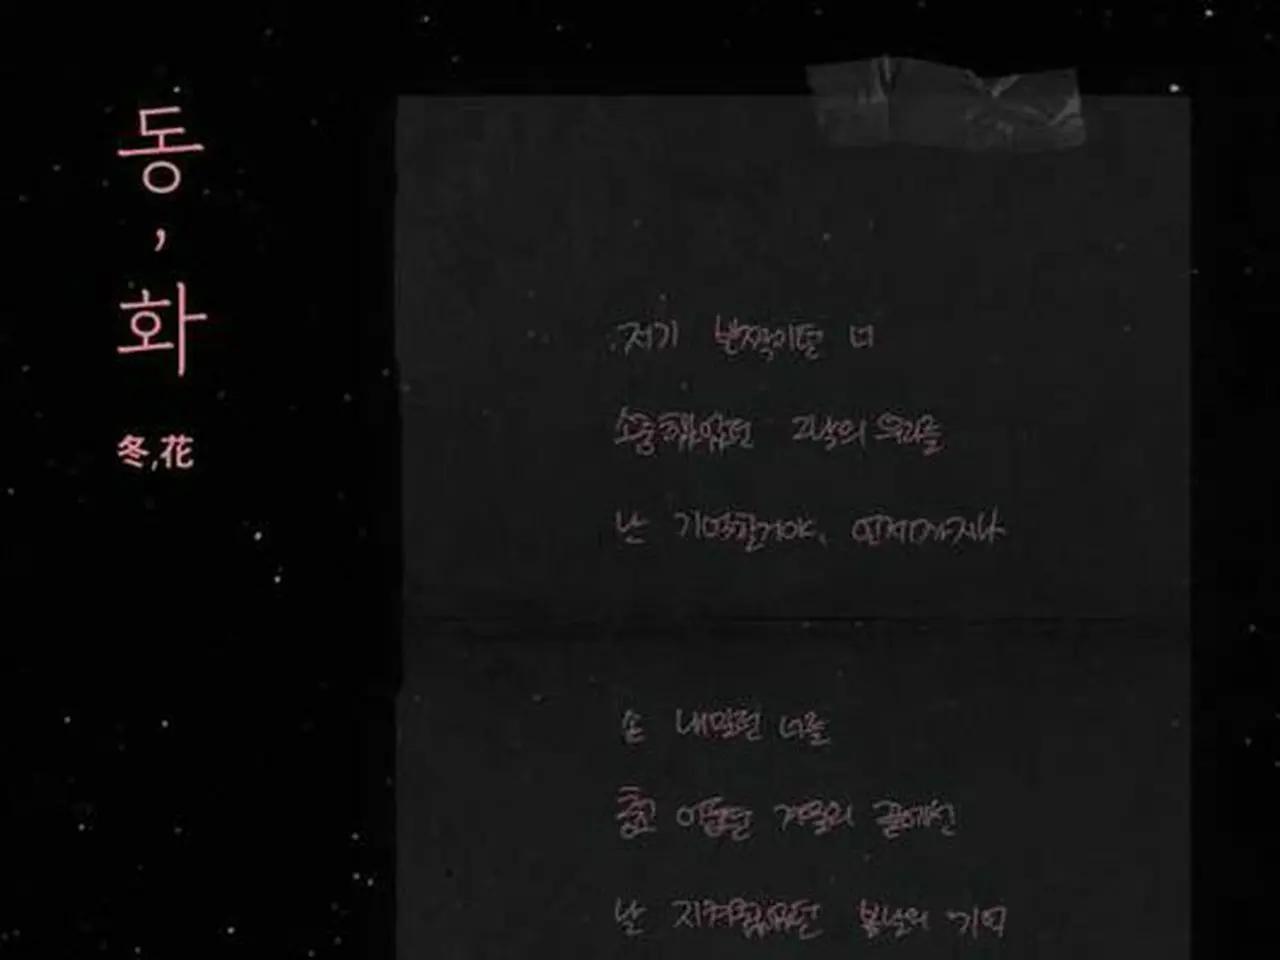 동
,
화
冬,花
저기 반짝이던 너
소중했었던 그날의 우리를
난 기억할거야, 언제까지나
손 내밀던 너를
춥고 어둡던 겨울의 끝에선
날 지켜줬었던 봄날의 기억